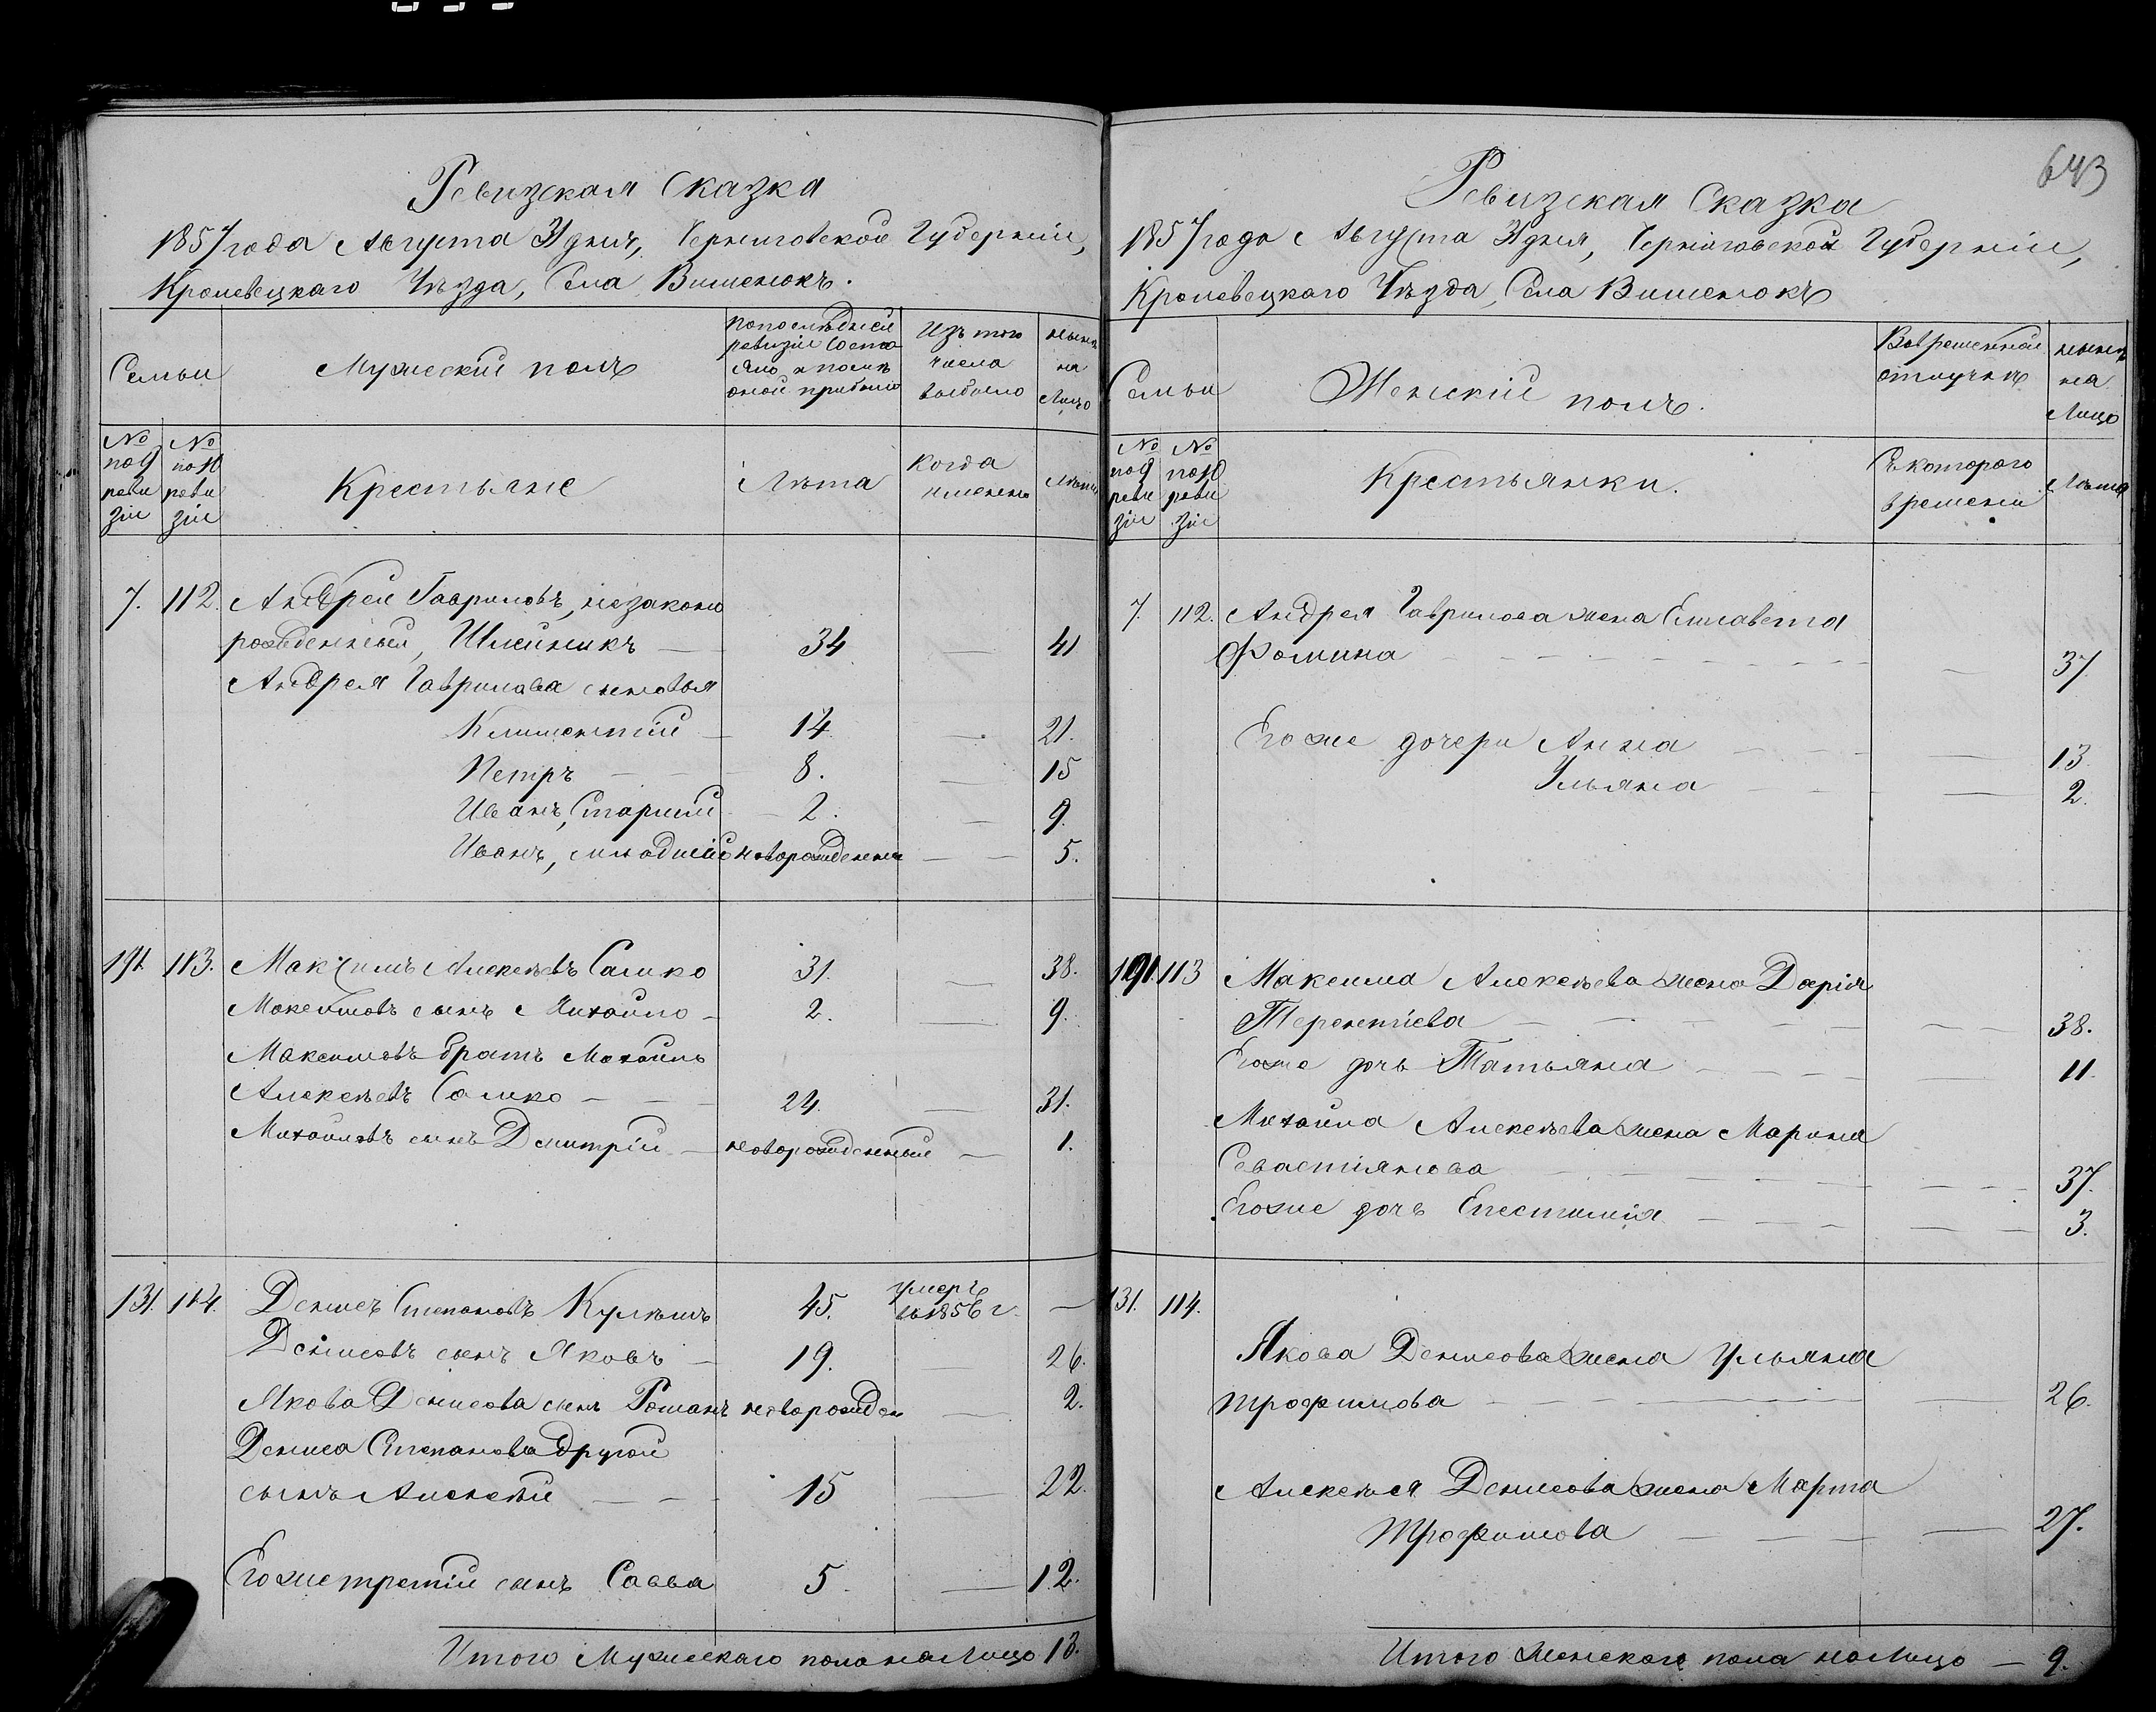 Ревизская Сказка
1857 года Августа 31 дня, Черниговской Губерніи,
Кролевецкаго Уѣзда, Села Вишенокъ.
Семьи
Мужескій полъ
по последней ревизіи состояло и после оной прибыло
Изъ того числа выбыло
нынѣ на Лицо
№ по 9 реви зіи
№ по 10 реви зіи
Крестьяне
Лѣта
Когда именно
Лѣта
7. 112. Андрей Гавриловъ, незаконо
рожденный, Шлейникъ — 34 — 41
Андрея Гаврилова сыновья
Климентій — 14 — 21.
Петръ — 8. — 15
Иванъ, Старшій — 2. — 9.
Иванъ, младшій новорожденны — 5.
191. 113. Максимъ Алексѣевъ Сашко 31. — 38.
Максимовъ сынъ Михайло — 2. — 9.
Максимовъ братъ Михайло
Алексѣевъ Сашко — 24. — 31.
Михайловъ сынъ Дмитрій — новорожденный — 1.
131. 114. Денисъ Степановъ Кулѣшъ 45. умеръ въ 1856 г. —
Денисовъ сынъ Яковъ — 19. — 26.
Якова Денисова сынъ Романъ новорожден — 2.
Дениса Степанова другой
сынъ Алексѣй — 15 — 22.
Егоже третій сынъ Савва 5. — 12.
Итого Мужескаго пола на Лицо 13.
643
Ревизская Сказка
1857 года Августа 31 дня, Черниговской Губерніи,
Кролевецкаго Уѣзда, Села Вишенокъ
Семьи
Женскій полъ.
Во временной отлучкѣ
нынѣ на Лицо
№ по 9 реви зіи
№ по 10 реви зіи
Крестьянки.
Съ котораго времени
Лѣта
7. 112. Андрея Гаврилова жена Елисавета
Фомина — — 37
Егоже дочери Анна — — 13.
Ульяна — — 2.
191. 113 Максима Алексѣева жена Дарія
Терентіева — — 38.
Егоже дочь Татьяна — — 11.
Михайла Алексѣева жена Марина
Севастіянова — — 37.
Егоже дочь Епестимія — — 3.
131. 114.
Якова Денисова жена Ульяна
Трофимова — — 26.
Алексѣя Денисова жена Марта
Трофимова — — 27.
Итого женскаго пола на Лицо — 9.